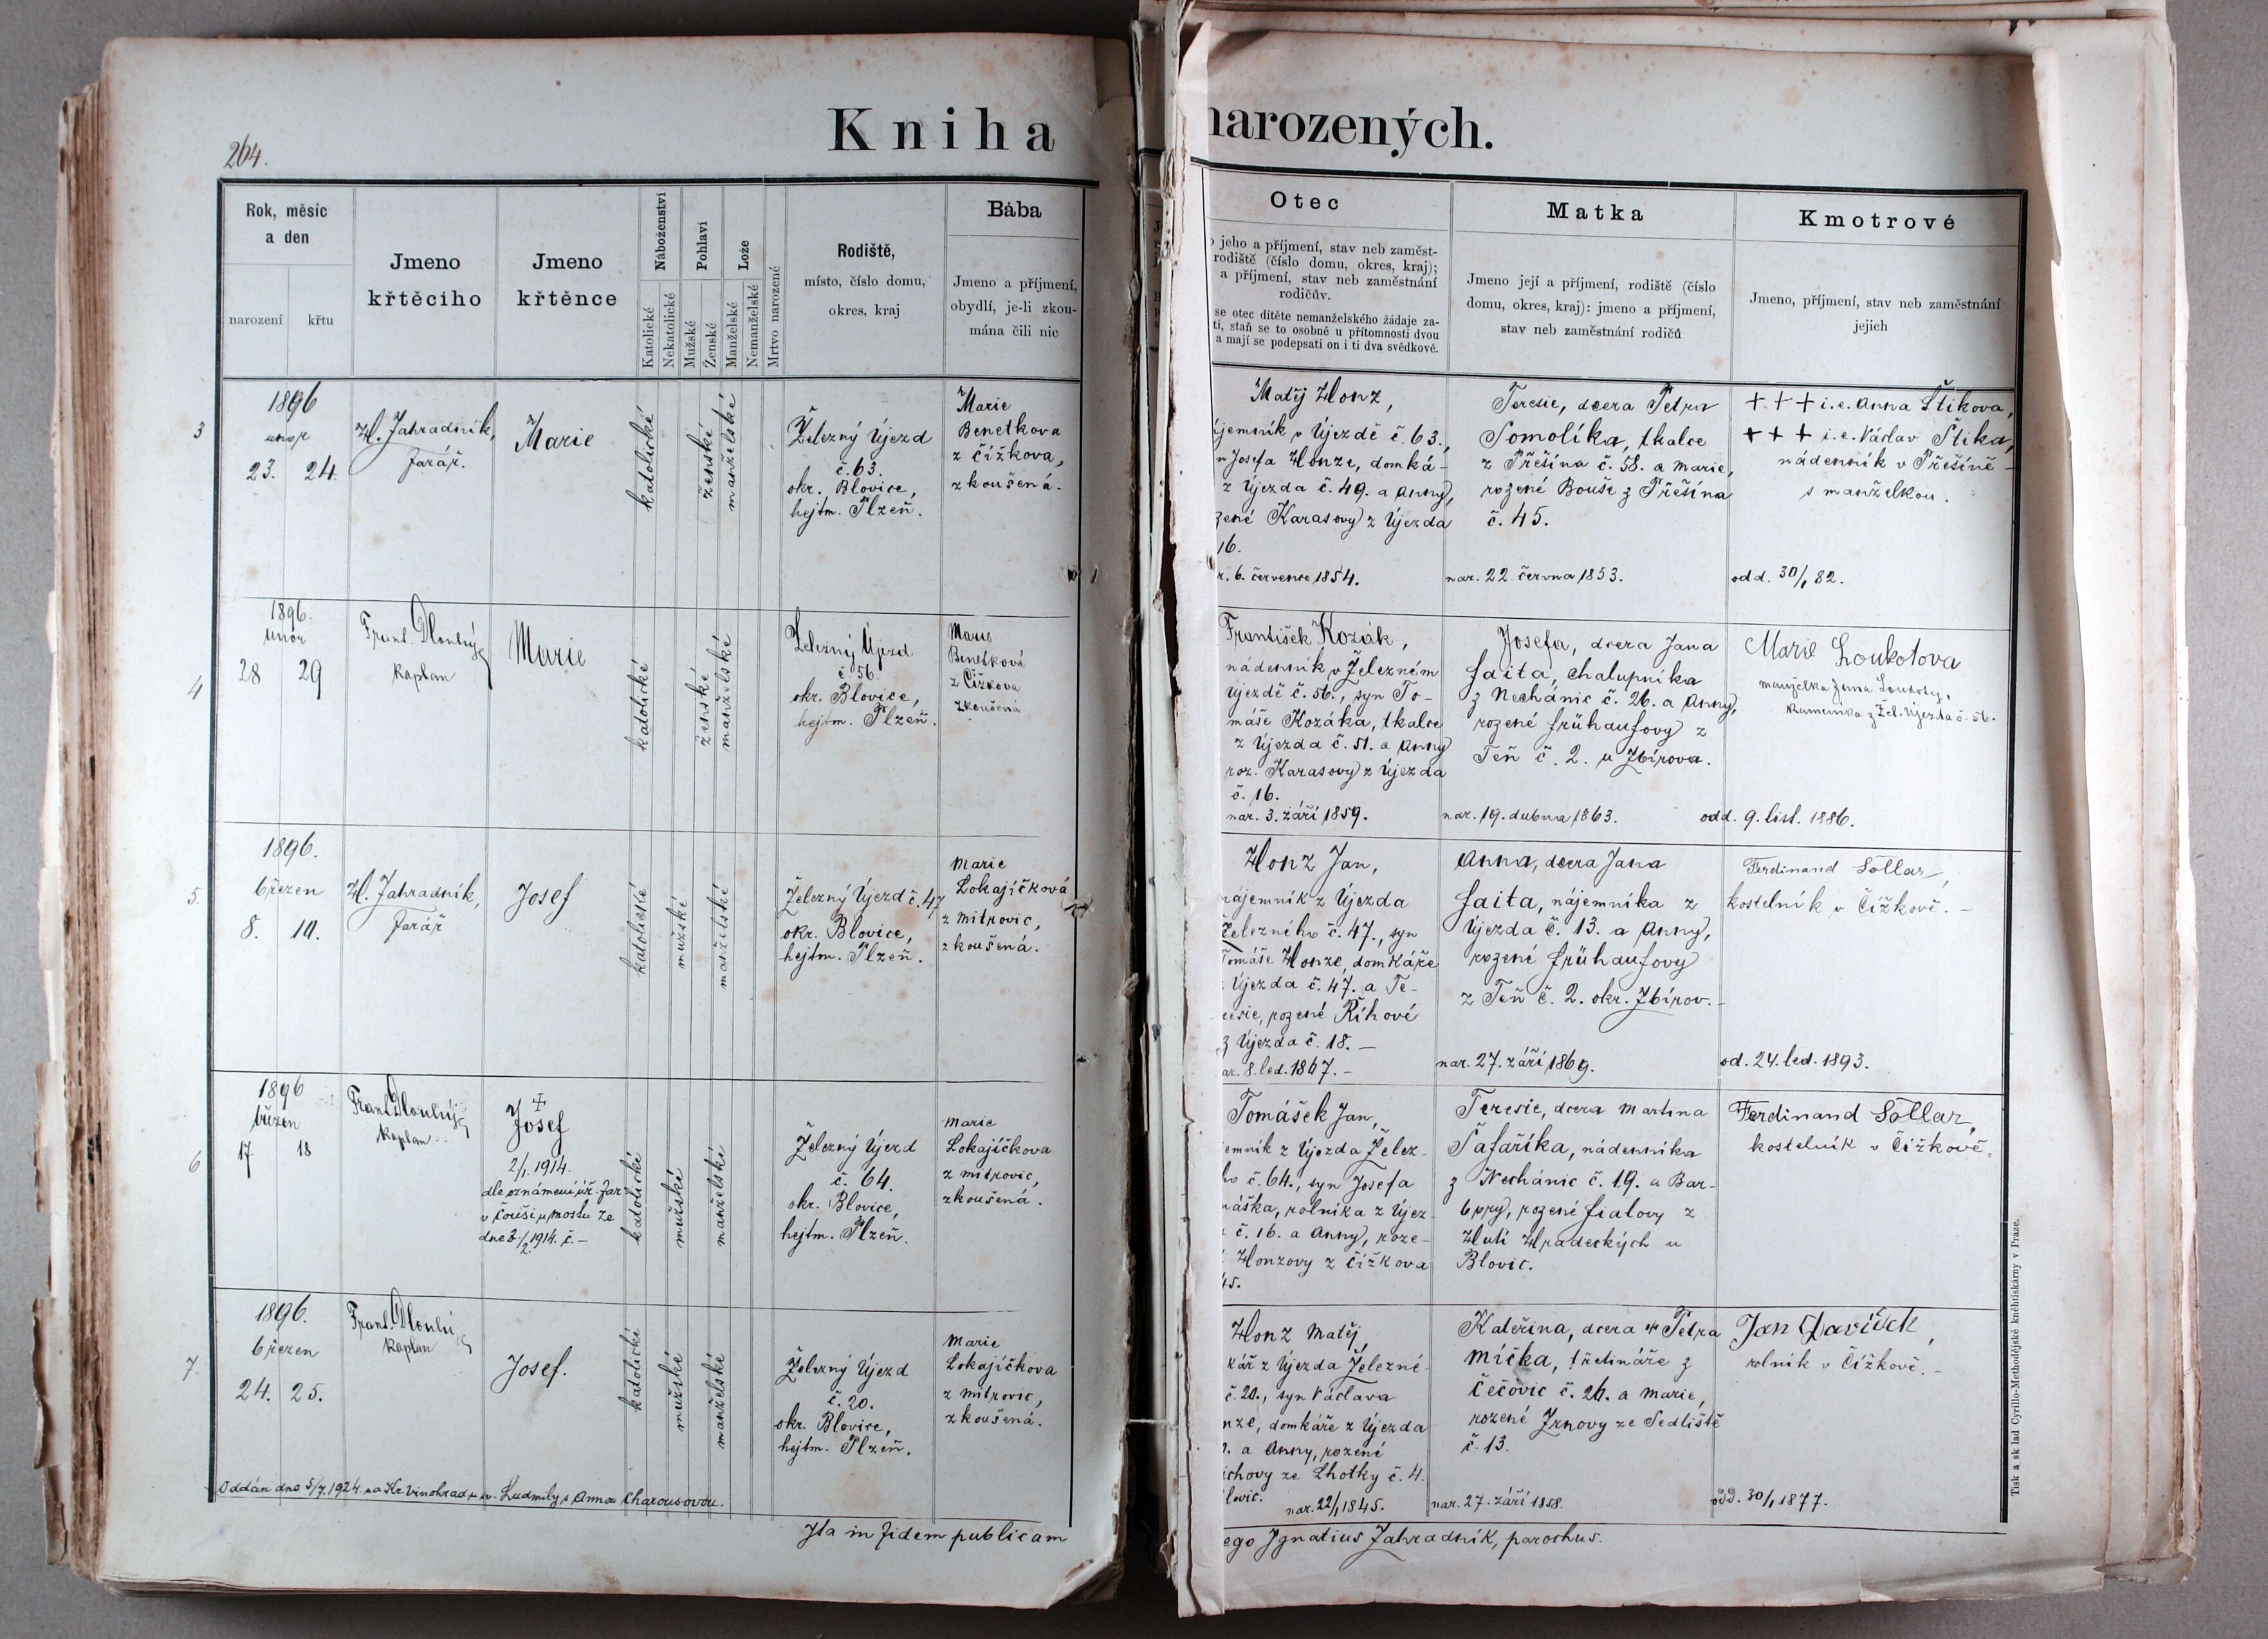 264.
Kniha
narozených.
Rok, měsíc
a den
narození
křtu
Jmeno
křtěcího
Jmeno
křtěnce
Náboženství
Katolické
Nekatolické
Pohlaví
Mužské
Ženské
Lože
Manželské
Nemanželské
Mrtvo narozené
Rodiště,
místo, číslo domu,
okres, kraj
Bába
Jmeno a příjmení,
obydlí, je-li zkou-
mána čili nic
Otec
jeho a příjmení, stav neb zaměst-
rodiště (číslo domu, okres, kraj);
a příjmení, stav neb zaměstnání
rodičův.
se otec dítěte nemanželského žádaje za-
ti, staň se to osobně u přítomnosti dvou
a mají se podepsati on i ti dva svědkové.
Matka
Jmeno její a příjmení, rodiště (číslo
domu, okres, kraj): jmeno a příjmení,
stav neb zaměstnání rodičů
Kmotrové
Jmeno, příjmení, stav neb zaměstnání
jejich
3
1896
únor
23. 24.
Zahradník,
farář.
Marie
katolické
ženské
manželské
Železný Újezd
č. 63.
okr. Blovice,
hejtm. Plzeň.
Marie
Benetkova
z Čížkova,
zkoušená.
Matěj Honz,
v Újezdě č. 63.,
Josefa Honze, domká-
z Újezda č. 49. a Anny,
Karasovy z Újezda
16.
6. července 1854.
Teresie, dcera Petra
Somolíka, tkalce
z Přešína č. 58. a Marie,
rozené Bouše z Přešína
č. 45.
nar. 22. června 1853.
+++ i.e. Anna Štikova,
+++ i.e. Václav Štika,
nádenník v Přešíně
s manželkou.
odd. 30/1 82.
4
1896.
únor
28 29
Frant. Dlouhý
kaplan
Marie
katolické
ženské
manželské
Železný Újezd
č. 56.
okr. Blovice,
hejtm. Plzeň.
Marie
Benetková
z Čížkova
zkoušená
František Kozák,
nádenník v Železném
Újezdě č. 56., syn To-
máše Kozáka, tkalce
z Újezda č. 51. a Anny
roz. Karasovy z Újezda
č. 16.
nar. 3. září 1859.
Josefa, dcera Jana
Faita, chalupníka
z Nechánic č. 26. a Anny,
rozené Frühaufovy z
Teň č. 2. u Zbírova.
nar. 19. dubna 1863.
Marie Loukotova
manželka Jana Loukoty,
kameníka z Žel. Újezda č. 56.
odd. 9. list. 1886.
5.
1896.
březen
8. 10.
Zahradník,
farář
Josef
katolické
mužské
manželské
Železný Újezd č. 47
okr. Blovice,
hejtm. Plzeň.
Marie
Lokajíčková
z Mitrovic,
zkoušená.
Honz Jan,
nájemník z Újezda
Železného č. 47., syn
Tomáše Honze, domkáře
Újezda č. 47. a Te-
resie, rozené Říhové
z Újezda č. 18. –
8. led. 1867. –
Anna, dcera Jana
Faita, nájemníka z
Újezda č. 13. a Anny,
rozené Frühaufovy
z Teň č. 2. okr. Zbírov. –
nar. 27. září 1869.
Ferdinand Sollar,
kostelník v Čížkově. –
od. 24. led. 1893.
6
1896
březen
17. 18
Frant. Dlouhý
kaplan
+
Josef
2/1. 1914.
dle oznámení
ze
dne 1914. č. –
katolické
mužské
manželské
Železný Újezd
č. 64.
okr. Blovice,
hejtm. Plzeň.
Marie
Lokajíčkova
z Mitrovic,
zkoušená.
Tomášek Jan,
z Újezda Želez-
č. 64., syn Josefa
rolníka z Újez-
č. 16. a Anny, roze-
Honzovy z Čížkova
45.
Teresie, dcera Martina
Šafaříka, nádenníka
z Nechánic č. 19. a Bar-
bory, rozené Fialovy z
Hutí Hradeckých u
Blovic.
Ferdinand Sollar,
kostelník v Čížkově.
7.
1896.
březen
24. 25.
Frant. Dlouhý
kaplan
Josef.
katolické
mužské
manželské
Železný Újezd
č. 20.
okr. Blovice,
hejtm. Plzeň.
Marie
Lokajíčkova
z Mitrovic,
zkoušená.
Honz Matěj,
z Újezda Železné-
č. 20., syn Václava
domkáře z Újezda
a Anny, rozené
ze Lhotky č. 4.
nar. 22/1 1845.
Kateřina, dcera Petra
Míčka, třetináře z
Čečovic č. 26. a Marie,
rozené Zrnovy ze Sedliště
č. 13.
nar. 27. září 1858.
Jan Davídek,
rolník v Čížkově. –
odd. 30/1 1877.
Oddán dne 5/7. 1924. na Kr. Vinohrad. u sv. Ludmily s Annou Charousovou.
Ita in fidem publicam
ego Ignatius Zahradník, parochus.
Tisk a sklad Cyrillo-Methodějské knihtiskárny v Praze.